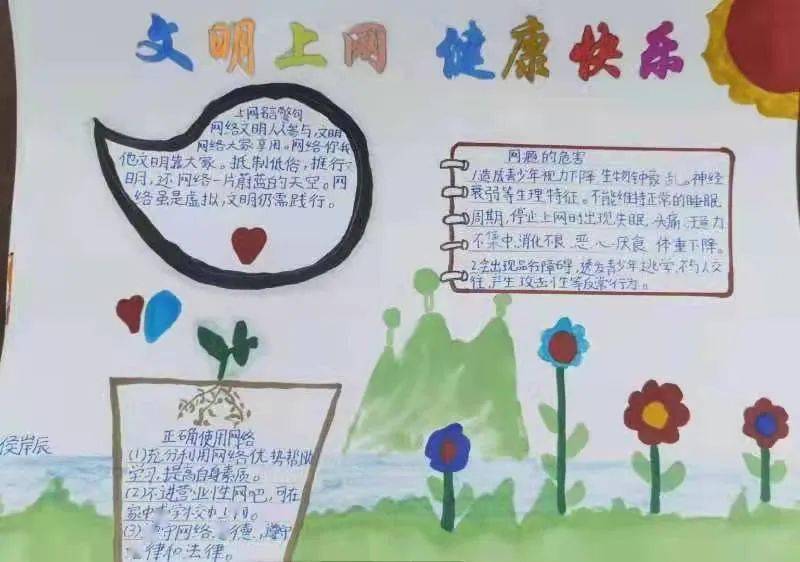 文明上网 健康快乐
上网名言警句
网络文明人人参与,文明
网络大家享用。网络你我
他文明靠大家。抵制低俗,推行文
明,还网络一片蔚蓝的天空。网
络虽是虚拟,文明仍需践行。
网瘾的危害
1.造成青少年视力下降 生物钟紊乱。神经
衰弱等生理特征。不能维持正常的睡眠
周期,停止上网时出现失眠、头痛、注意力
不集中、消化不良、恶心厌食 体重下降。
2.会出现品行障碍,诱发青少年逃学,不与人交
往,产生攻击性等反常行为。
侯岸辰
正确使用网络
(1)充分利用网络优势帮助
学习,提高自身素质。
(2)不进营业性网吧,可在
家中 学校中上网。
(3) 守网络 德,遵守
律和法律。